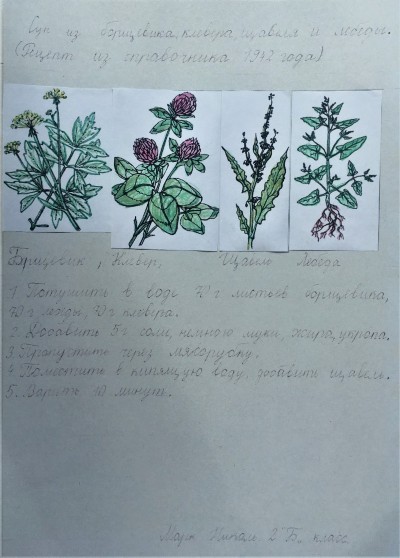 Суп из борщевика, клевера, щавеля и лебеды.
(Рецепт из справочника 1942 года)
Борщевик, Клевер, Щавель Лебеда
1. Потушить в воде 70 г листьев борщевика,
70 г лебеды, 70 г клевера.
2. Добавить 5 г соли, немного муки, жира, укропа.
3. Пропустить через мясорубку.
4. Поместить в кипящую воду, добавить щавель.
5. Варить 10 минут.
2 "Б" класс